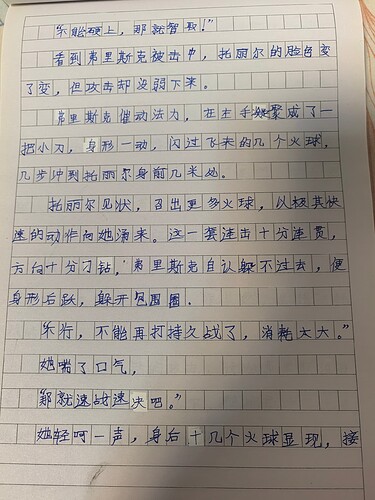 “不能硬上，那就智取！”
看到弗里斯克被击中，托丽尔的脸色变
了变，但攻击却没弱下来。
弗里斯克催动法力，在主手凝聚成了一
把小刀，身形一动，闪过飞来的几个火球，
几步冲到托丽尔身前几米处。
托丽尔见状，召出更多火球，以极其快
速的动作向她涌来。这一套连击十分连贯，
方向十分刁钻，弗里斯克自认躲不过去，便
身形后跃，躲开包围圈。
“不行，不能再打持久战了，消耗太大。”
她喘了口气，
“那就速战速决吧。”
她轻呵一声，身后十几个火球显现，接